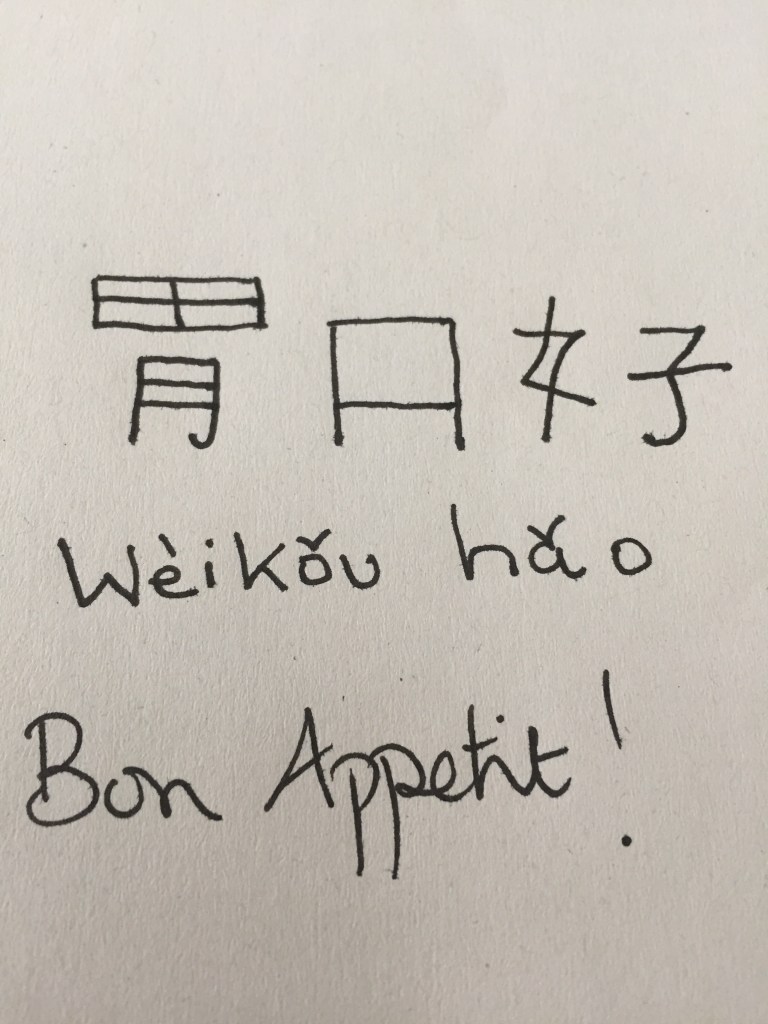 胃口好
Wèikǒu hǎo
Bon Appetit!